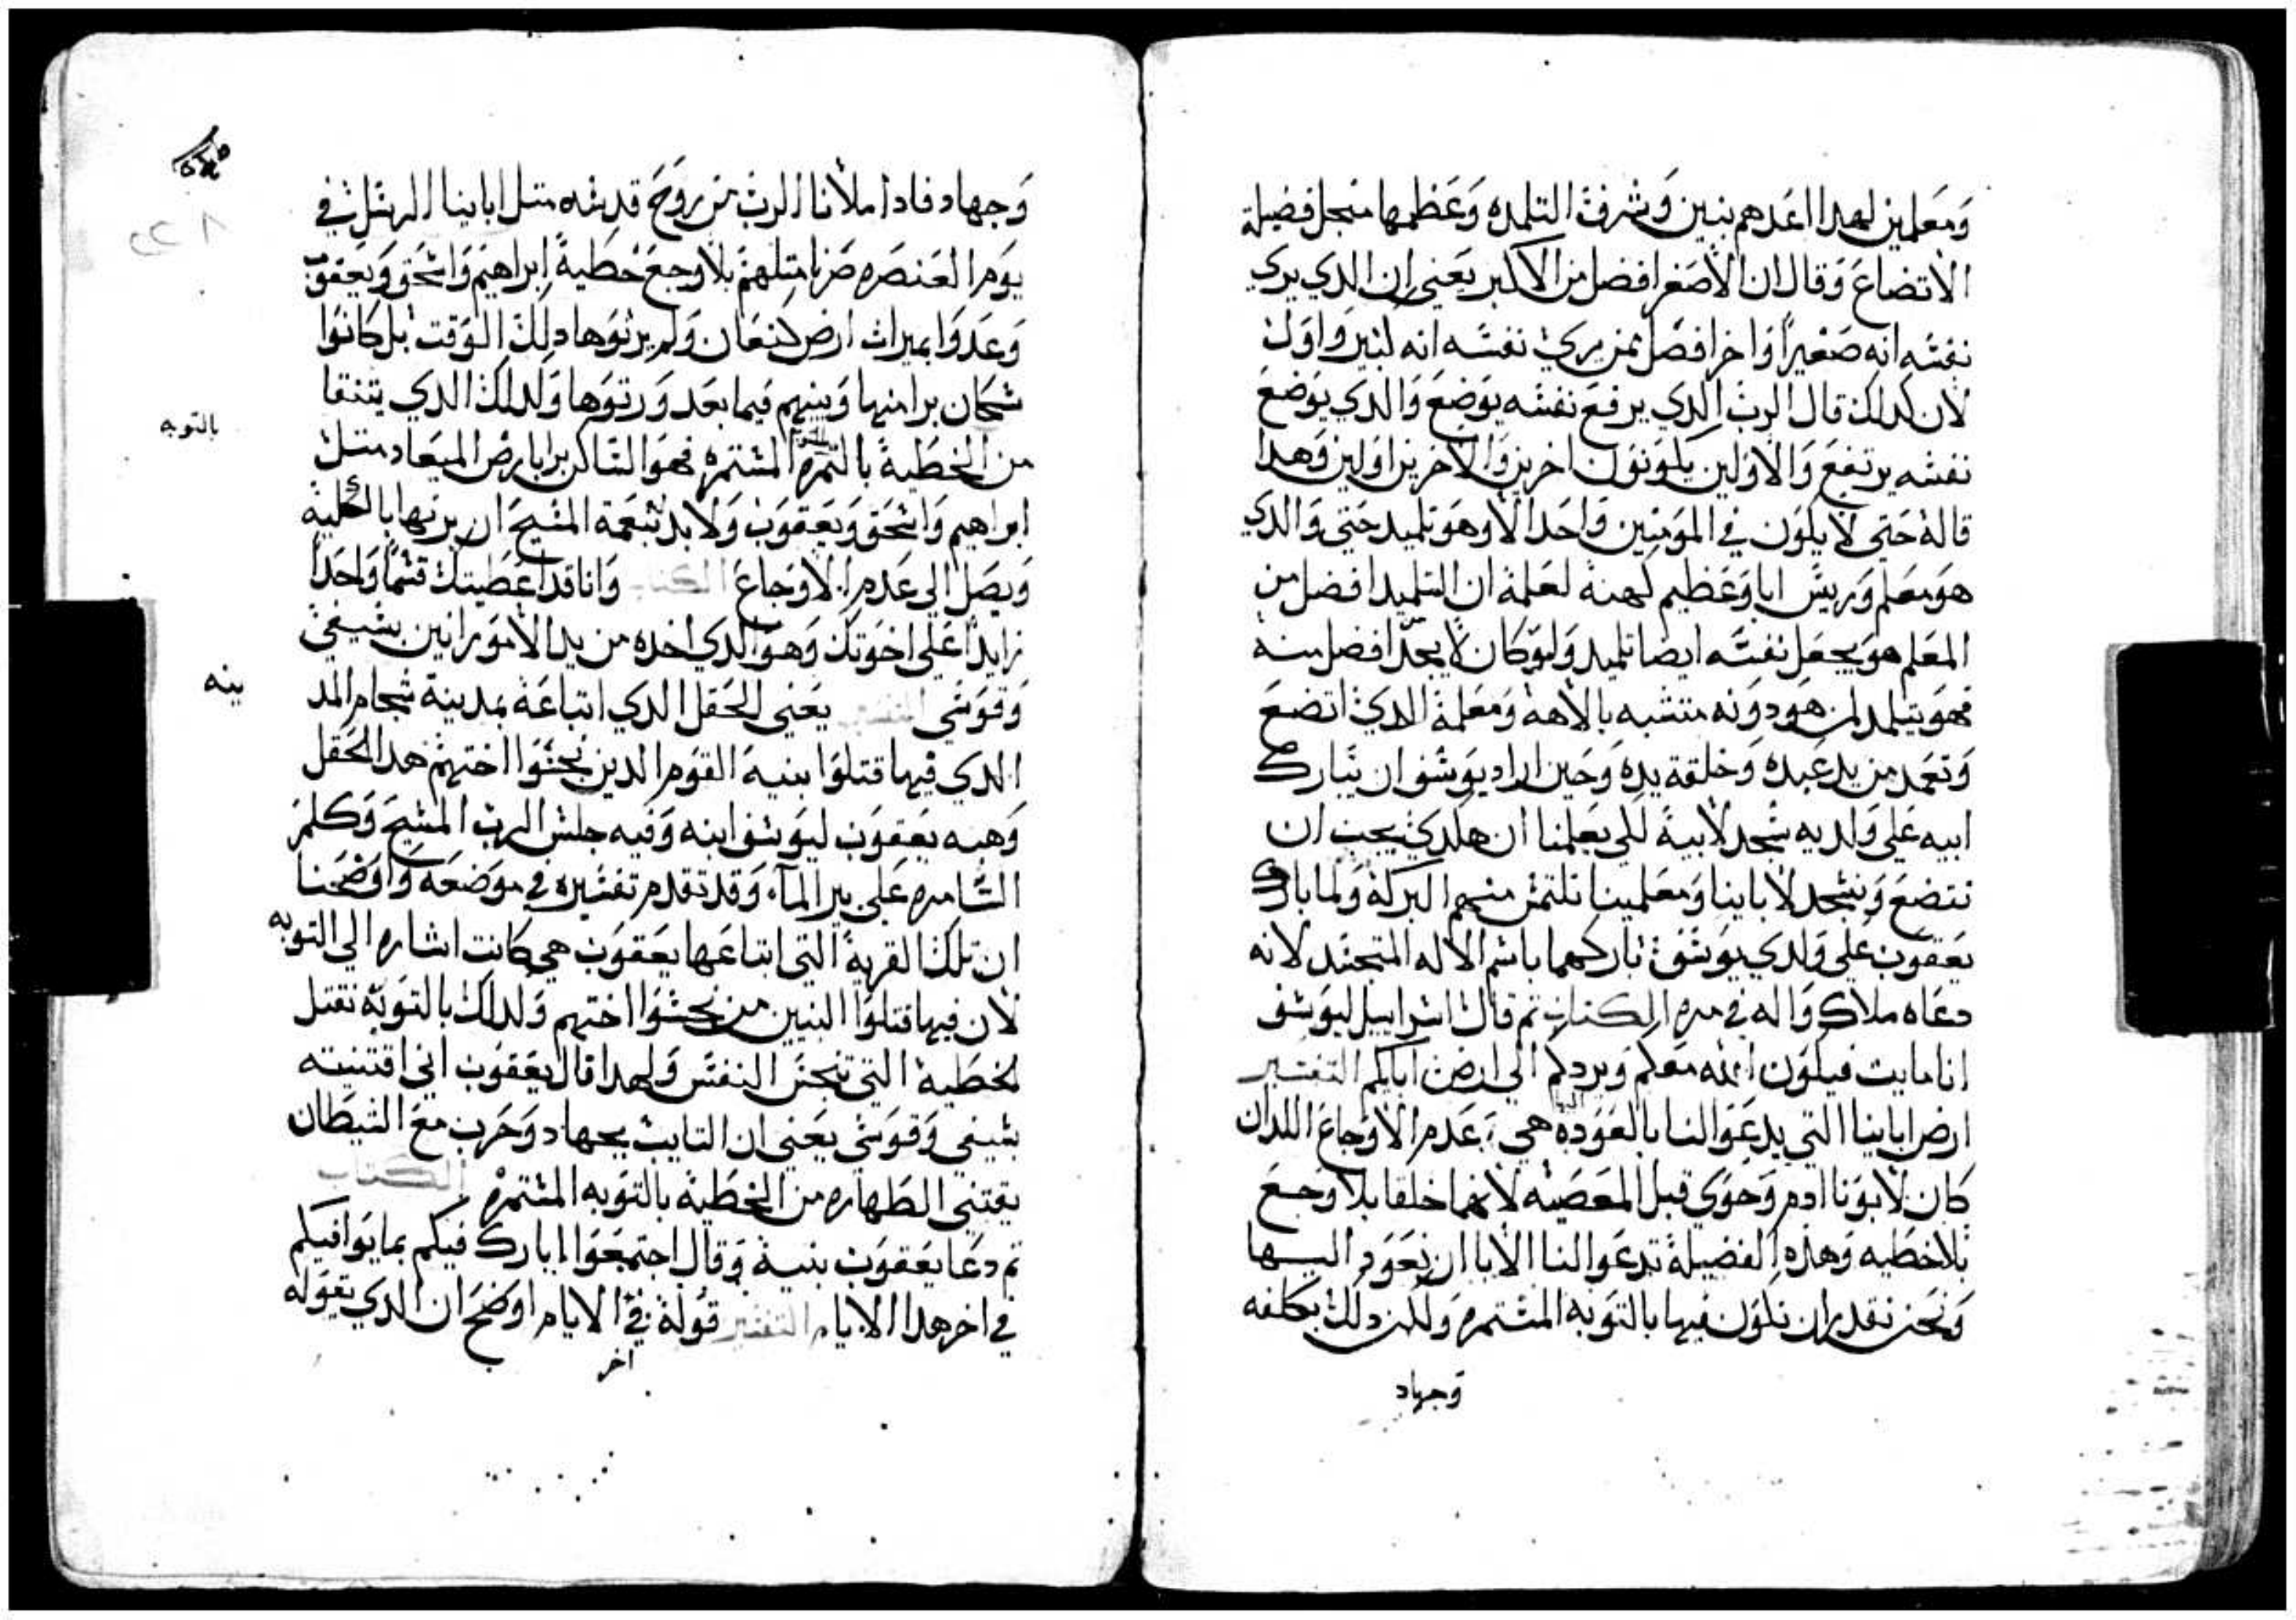 ومعلمين لهدا اعدهم بنين وشرف التلمده وعظمها منجل فضيلة
الاتضاع وقال ان الاصغر افضل من الاكبر يعني ان الدي يري
نفسه انه صغيرا واخر افضل ممن يري نفسه انه كبير واول
لان كدلك قال الرب الدي يرفع نفسه يوضع والدي يوضع
نفسه يرتفع والاولين يكونون اخرين والاخرين اولين وهدا
قاله حتي لا يكون في المومنين واحدا الا وهو تلميد حتي والدي
هو معلم وريس ابا وعظيم كهنة لعلمه ان التلميد افضل من
المعلم هو يجعل نفسه ايضا تلميد ولو كان لا يجد افضل منه
فهو يتلمد لمن هو دونه متشبه بالاهه ومعلمه الدي اتضع
وتعمد من يد عبده وخلقة يده وحين اراد يوسف ان يبارك
ابيه علي ولديه سجد لابيه لكي يعلمنا ان هكدي يجب ان
نتضع ونسجد لاباينا ومعلمينا نلتمس منهم البركة ولما بارك
يعقوب علي ولدي يوسف باركهما باسم الاله المتجسد لانه
دعاه ملاك واله في مره الكتاب تم قال اسراييل ليوسف
انا مايت فيكون الله معكم ويردكم الي ارض ابايكم التفسير
ارض اباينا التي يدعوا لنا بالعوده هي عدم الاوجاع اللدان
كان لابونا ادم وحوي قبل المعصيه لانهما خلقا بلا وجع
بلا خطيه وهده الفضيلة تدعوا لنا الابا ان نعود اليها
ونحن نقدر ان نكون فيها بالتوبه المستمره ولكن دلك بكلفه
وجهاد
وجهاد فادا ملانا الرب من روح قدسه متل اباينا الرسل في
يوم العنصره صرنا متلهم بلا وجع خطية ابراهيم واسحق ويعقوب
وعدوا بميرات ارض كنعان ولم يرتوها دلك الوقت بل كانوا
سكان برا منها وبنيهم فيما بعد ورتوها ولدلك الدي يتنقا
من الخطية بالتمره المستمره فهو الساكن برا بارض الميعاد متل
بالتوبه
ابراهيم واسحق ويعقوب ولا بد بنعمة المسيح ان يرتها بالكلية
ويصل الي عدم الاوجاع الكتاب وانا قد اعطيتك قسما واحدا
زايدا علي اخوتك وهو الدي اخده من يد الامورانين بسيفي
وقوسي التفسير يعني الحقل الدي ابتاعه بمدينة شجام المد
ينه
الدي فيها قتلوا بنيه القوم الدين نجسوا اختهم هدا الحقل
وهبه يعقوب ليوسف ابنه وفيه جلس الرب المسيح وكلم
السامره علي بير الماء وقد تقدم تفسيره في موضعه واوضحنا
ان تلك القرية التي ابتاعها يعقوب هي كانت اشاره الي التوبه
لان فيها قتلوا البنين من نجسوا اختهم ولدلك بالتوبة نقتل
لخطية التي تنجس النفس ولهدا قال يعقوب اني اقتنيته
بسيفي وقوسي يعني ان التايب بجهاد وحرب مع الشيطان
يقتني الطهاره من الخطية بالتوبه المستمره الكتاب
تم دعا يعقوب بنيه وقال اجتمعوا ابارك فيكم بما يوافيكم
في اخر هدا الايام التفسير قوله في الايام اوضح ان الدي يقوله
اخر